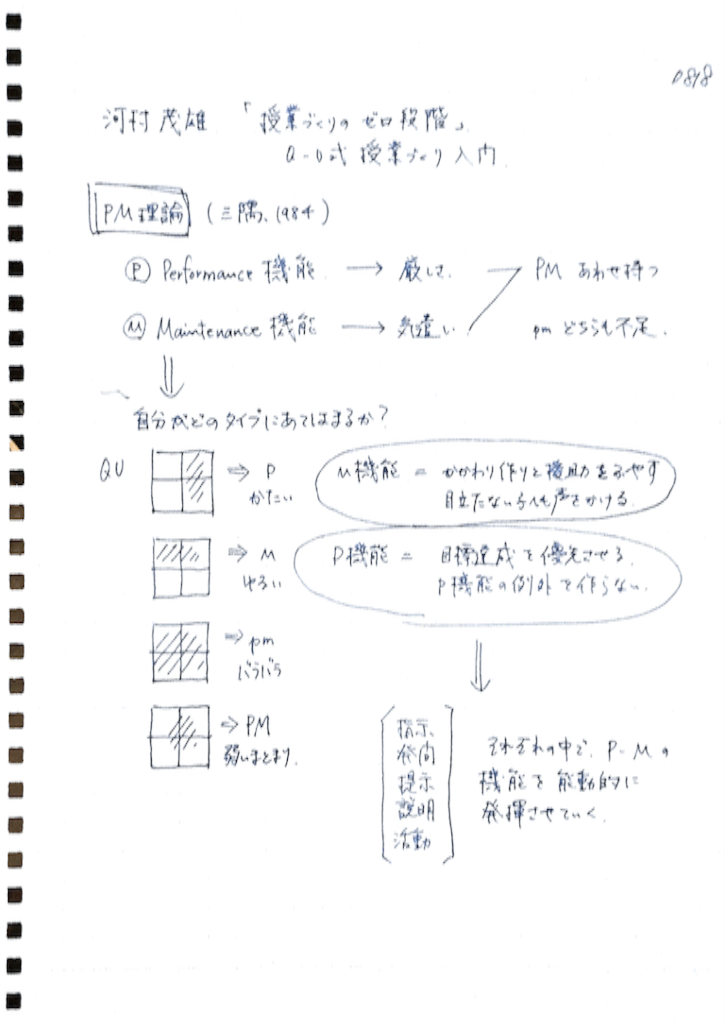 0818
河村茂雄 「授業づくりのゼロ段階」
Q-U式授業づくり入門
PM理論 (三隅、1984)
Ⓟ Performance 機能 → 厳しさ PM あわせ持つ
Ⓜ Maintenance 機能 → 気遣い pm どちらも不足.
⇓
自分がどのタイプにあてはまるか?
QU ⇒ P M機能 = かかわり作りと援助をふやす
かたい 目立たない子へも声をかける.
⇒ M P機能 = 目標達成を優先させる.
ゆるい P機能の例外を作らない.
⇒ pm
バラバラ
⇓
⇒ PM
弱いまとまり.
指示
発問 それぞれの中で、P-Mの
提示 機能を能動的に
説明 発揮させていく.
活動